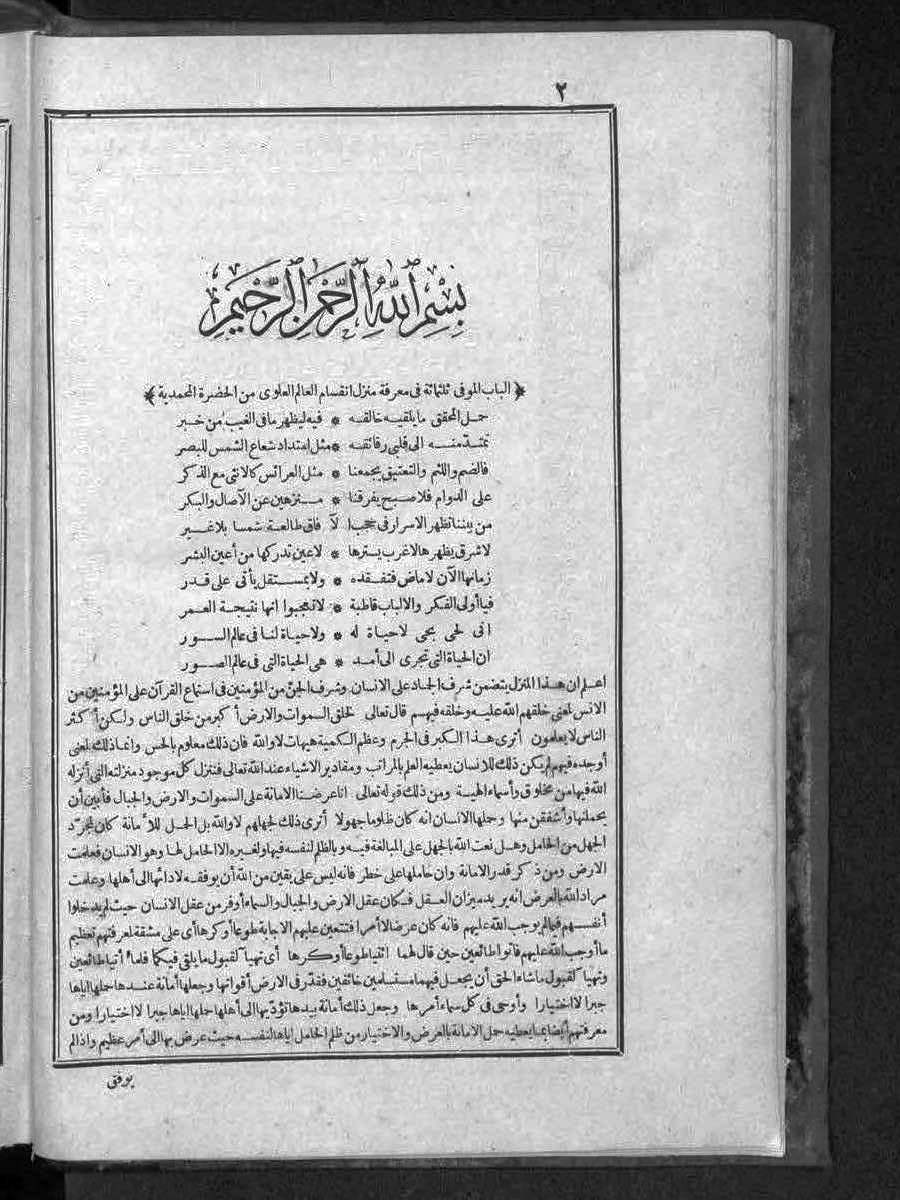 ٢
بِسْمِ ٱللَّهِ ٱلرَّحْمَنِ ٱلرَّحِيمِ
﴿ الباب الموفى ثلثمائة فى معرفة منزل انقسام العالم العلوى من الحضرة المحمدية ﴾
حمل المحقق ما يلقيه خالقه * فيه ليظهر ما فى الغيب من خبر
تمتد منه الى قلبى رقائقه * مثل امتداد شعاع الشمس للبصر
فالضم واللثم والتعنيق يجمعنا * مثل العرائس كالانثى مع الذكر
على الدوام فلا صبح يفرقنا * منزهين عن الآصال والبكر
من بيننا تظهر الاسرار فى حجب * لآفاق طالعة شمسا بلا غير
لا شرق يظهرها لا غرب يسترها * لا عين تدركها من أعين البشر
زمانها الآن لا ماض فتفقده * ولا بمستقبل يأتى على قدر
فيا أولى الفكر والالباب قاطبة * لا تعجبوا انها نتيجة العمر
انى لحى بحى لا حياة له * ولا حياة لنا فى عالم السور
ان الحياة التى تجرى الى أمد * هى الحياة التى فى عالم الصور
اعلم ان هذا المنزل يتضمن شرف الجماد على الانسان وشرف الجن من المؤمنين فى استماع القرآن على المؤمنين من
الانس لمعنى خلقهم الله عليه وخلقه فيهم قال تعالى لخلق السموات والارض أكبر من خلق الناس ولكن أكثر
الناس لا يعلمون أترى هذا الكبر فى الجرم وعظم الكمية هيهات لا والله فان ذلك معلوم بالحس وانما ذلك لمعنى
أوجده فيهم لم يكن ذلك للانسان يعطيه العلم بالمراتب ومقادير الاشياء عند الله تعالى فتنزل كل موجود منزلته التى أنزله
الله فيها من مخلوق وأسماء الهية ومن ذلك قوله تعالى انا عرضنا الامانة على السموات والارض والجبال فأبين أن
يحملنها وأشفقن منها وحملها الانسان انه كان ظلوما جهولا أترى ذلك لجهلهم لا والله بل الحمل للأمانة كان لمجرّد
الجهل من الحامل وهل نعت الله بالجهل على المبالغة فيه وبالظلم لنفسه فيها ولغيره الا الحامل لها وهو الانسان فعلمت
الارض ومن ذكر قدر الامانة وان حاملها على خطر فانه ليس على يقين من الله أن يوفقه لادائها الى أهلها وعلمت
مراد الله بالعرض انه يريد ميزان العقل فكان عقل الارض والجبال والسماء أوفر من عقل الانسان حيث لم يدخلوا
أنفسهم فيما لم يوجب الله عليهم فانه كان عرضا لا أمرا فتتعين عليهم الاجابة طوعا أو كرها أى على مشقة لمعرفتهم تعظيم
ما أوجب الله عليهم فأتوا طائعين حين قال لهما ائتيا طوعا أو كرها أى تهيأ لقبول ما يلقى فيكما فلما أتيا طائعين
وتهيا لقبول ما شاء الحق أن يجعل فيهما مستسلمين خائفين فقدّر فى الارض أقواتها وجعلها أمانة عندها حملها اياها
جبرا لا اختيارا وأوحى فى كل سماء أمرها وجعل ذلك أمانة بيدها تؤدّيها الى أهلها حملها اياها جبرا لا اختيارا ومن
معرفتهم أيضا بما يعطيه حمل الامانة بالعرض والاختيار من ظلم الحامل اياها لنفسه حيث عرض بها الى أمر عظيم واذا لم
يوفق